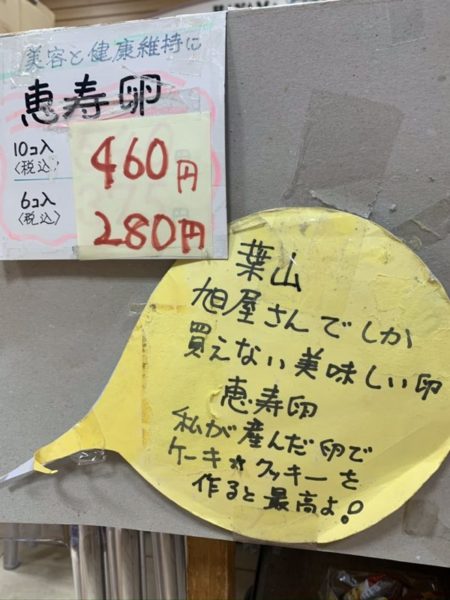 美容と健康維持に
恵寿卵
10コ入
〈税込〉
460円
6コ入
〈税込〉
280円
葉山
旭屋さんでしか
買えない美味しい卵
恵寿卵
私が産んだ卵で
ケーキやクッキーを
作ると最高よ!